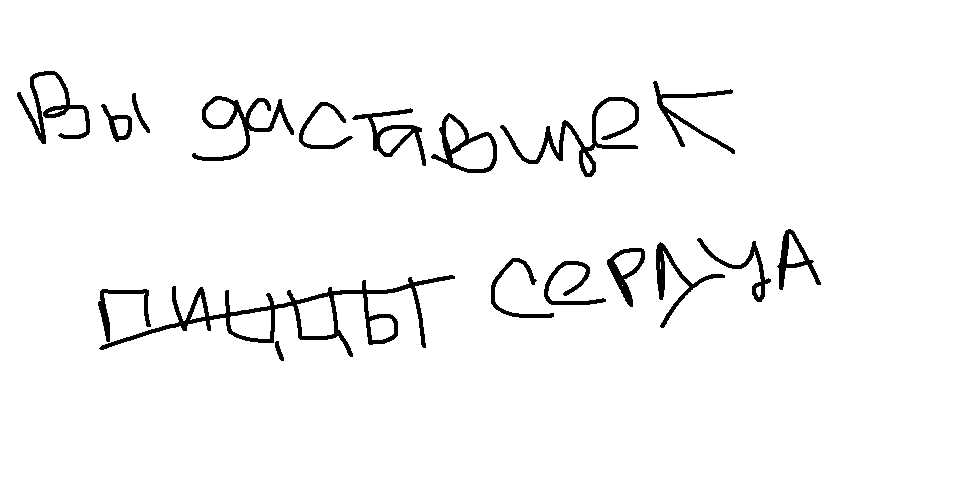 Вы даставщек
пиццы СЕРДЦА